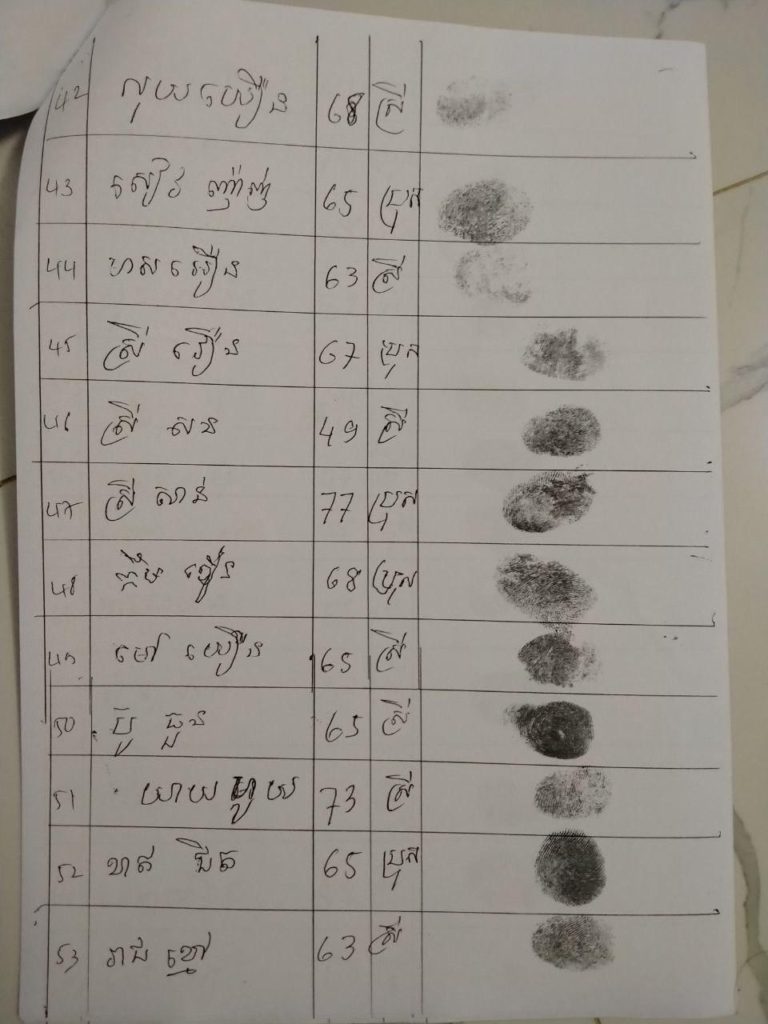 42 លុយ យឿន 68 ស្រី
43 សៀវ ញ៉ាញ់ 65 ប្រុស
44 ហស អឿន 63 ស្រី
45 ស្រី វឿន 67 ប្រុស
46 ស្រី សន 49 ស្រី
47 ស្រី សាន់ 77 ប្រុស
48 68 ប្រុស
49 មៅ យឿន 65 ស្រី
50 ប៊ូ ធួន 65 ស្រី
51 យាយ ម្អូយ 73 ស្រី
52 ខាត ជីត 65 ប្រុស
53 រាជ ខ្មៅ 63 ស្រី